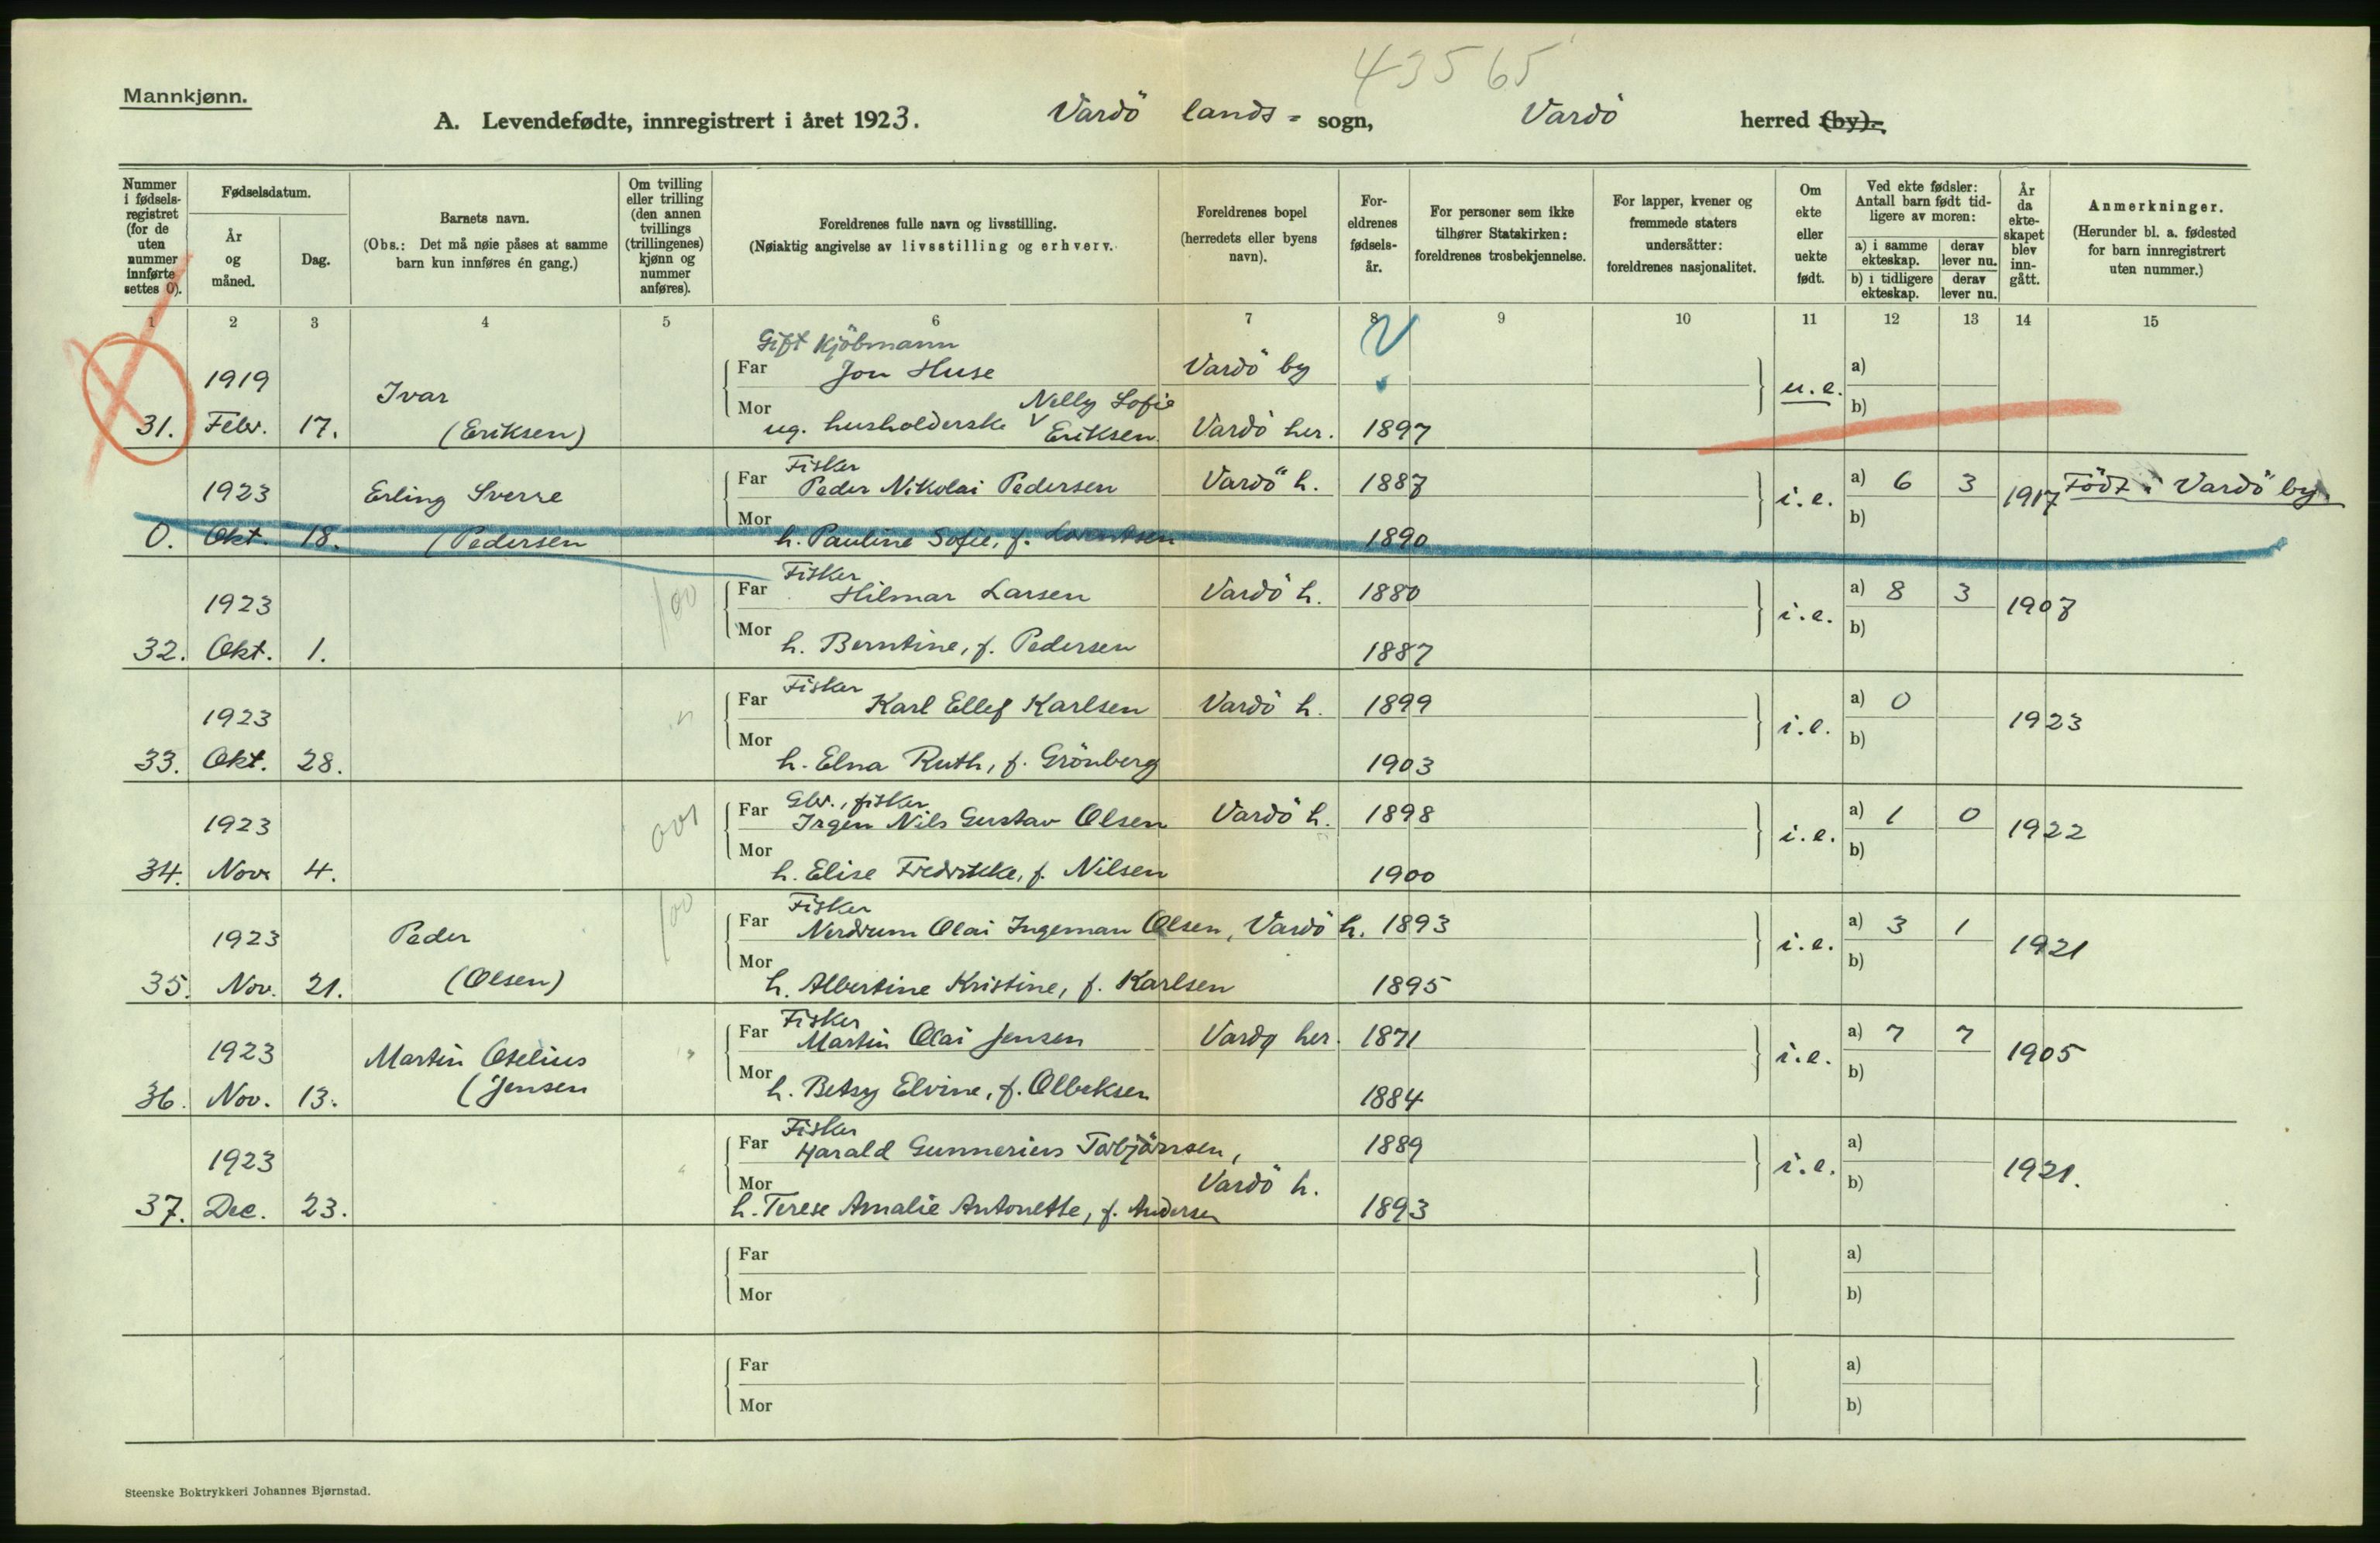 43565
Mannkjønn.
A. Levendefødte, innregistrert i året 1923. Vardö lands= sogn, Vardö herred (by).
Nummer i fødsels-registret (for de uten nummer innførte settes 0).
Fødselsdatum.
År og måned.
Dag.
Barnets navn.
(Obs.: Det må nøie påses at samme barn kun innføres én gang.)
Om tvilling eller trilling (den annen tvillings (trillingenes) kjønn og nummer anføres).
Foreldrenes fulle navn og livsstilling.
(Nøiaktig angivelse av livsstilling og erhverv.
Foreldrenes bopel (herredets eller byens navn).
For-eldrenes fødsels-år.
For personer sem ikke tilhører Statskirken: foreldrenes trosbekjennelse.
For lapper, kvener og fremmede staters undersåtter: foreldrenes nasjonalitet.
Om ekte eller uekte født.
Ved ekte fødsler: Antall barn født tid-ligere av moren:
a) i samme ekteskap.
derav lever nu.
b) i tidligere ekteskap.
derav lever nu.
År da ekte-skapet blev inn-gått.
Anmerkninger.
(Herunder bl. a. fødested for barn innregistrert uten nummer.)
1 2 3 4 5 6 7 8 9 10 11 12 13 14 15
Gift Kjöbmann
1919 Ivar Far Jon Huse Vardö by u.e. a)
Mor Nelly Sofie b)
31. Febr. 17. (Eriksen) ug. husholderske Eriksen Vardö her. 1897
Fisker
1923 Erling Sverre Far Peder Nikolai Pedersen Vardö h. 1887 i.e. a) 6 3 1917 Födt i Vardö by.
Mor b)
0. Okt. 18. (Pedersen h. Pauline Sofie, f. 1890
Fisker
1923 100 Far Hilmar Larsen Vardö h. 1880 i.e. a) 8 3 1907
Mor b)
32. Okt. 1. h. Berntine, f. Pedersen 1887
Fisker
1923 Far Karl Ellef Karlsen Vardö h. 1899 i.e. a) 0 1923
Mor b)
33. Okt. 28. h. Elna Ruth, f. Grönberg 1903
Gbr., fisker
1923 001 Far Irgen Nils Gustav Olsen Vardö h. 1898 i.e. a) 1 0 1922
Mor b)
34. Nov. 4. h. Elise Fredrikke, f. Nilsen 1900
Fisker
1923 Peder 100 Far Nerdrum Olai Ingeman Olsen, Vardö h. 1893 i.e. a) 3 1 1921
Mor b)
35. Nov. 21. (Olsen) h. Albertine Kristine, f. Karlsen 1895
Fisker
1923 Martin Otelius Far Martin Olai Jensen Vardø her. 1871 i.e. a) 7 7 1905
Mor b)
36. Nov. 13. (Jensen h. Betsy Elvine, f. Olbeksen 1884
Fisker
1923 Far Harald Gunnerius Torbjörnsen, 1889 i.e. a) 1921.
Mor Vardö h. b)
37. Dec. 23. h. Terese Amalie Antonette, f. Andersen 1893
Far a)
Mor b)
Far a)
Mor b)
Steenske Boktrykkeri Johannes Bjørnstad.